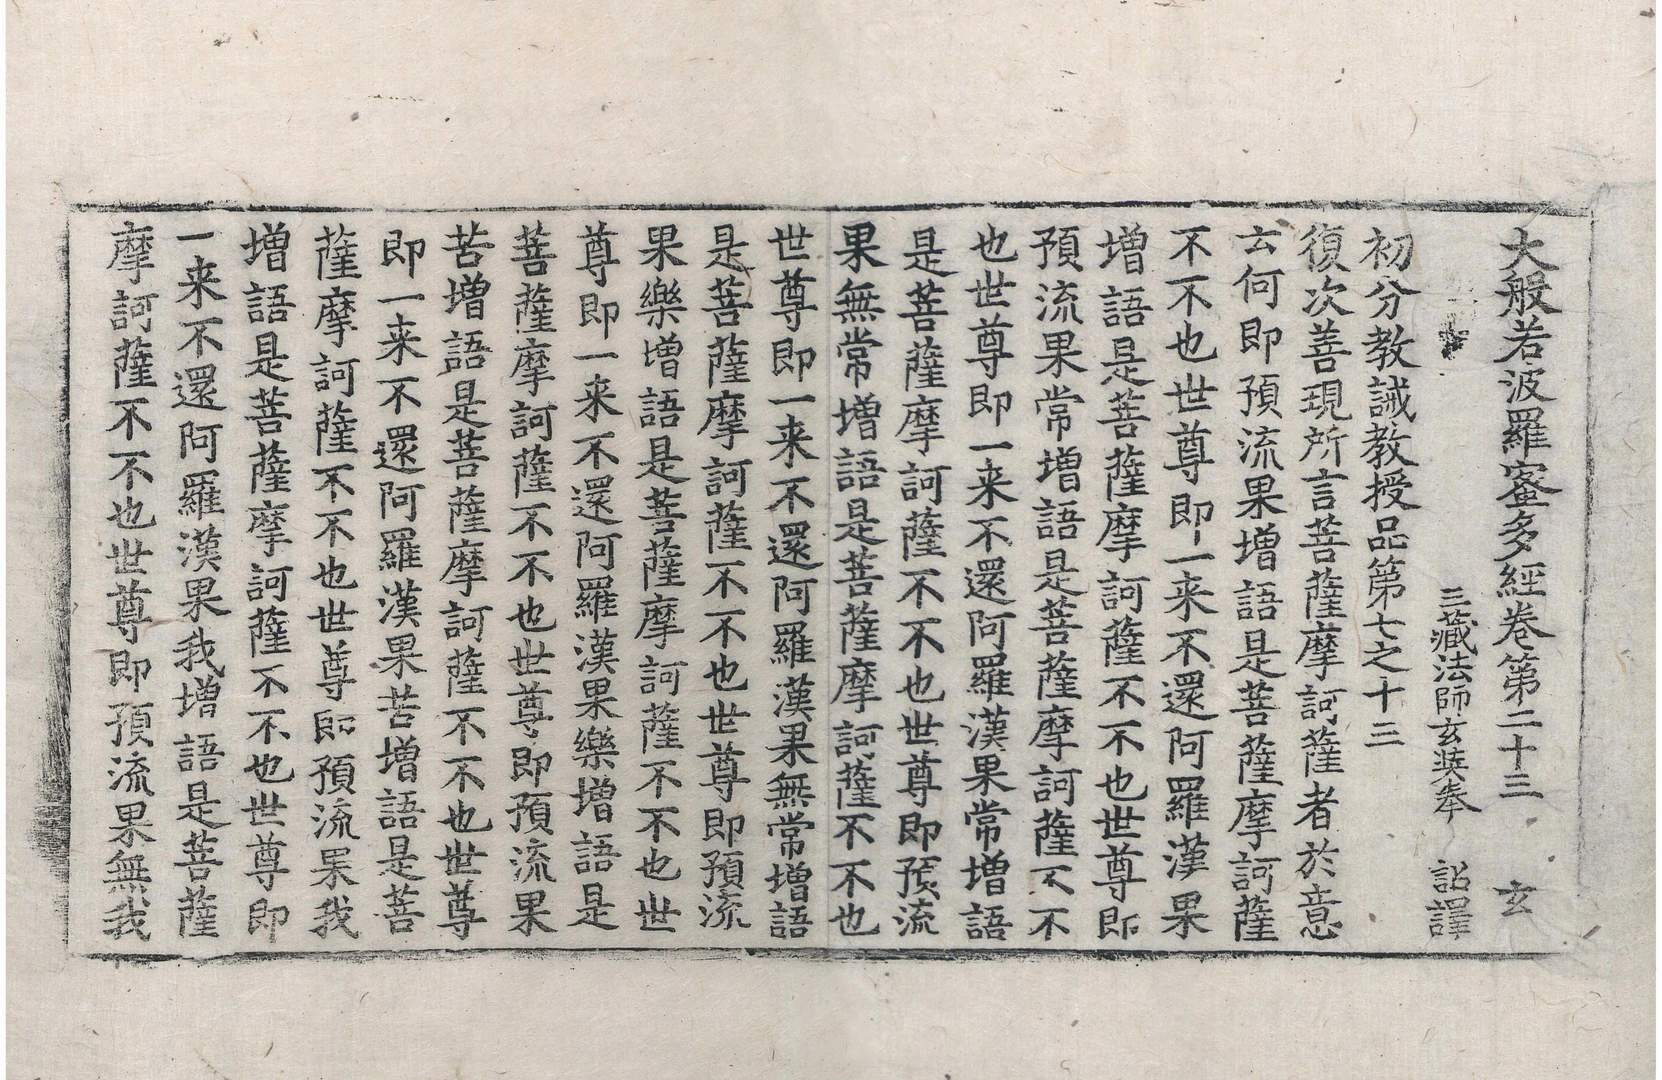 大般若波羅蜜多經卷第二十三 玄
三藏法師玄奘奉 詔譯
初分教誡教授品第七之十三
復次善現所言菩薩摩訶薩者於意
云何即預流果增語是菩薩摩訶薩
不不也世尊即一来不還阿羅漢果
增語是菩薩摩訶薩不不也世尊即
預流果常增語是菩薩摩訶薩不不
也世尊即一来不還阿羅漢果常增語
是菩薩摩訶薩不不也世尊即預流
果無常增語是菩薩摩訶薩不不也
世尊即一来不還阿羅漢果無常增語
是菩薩摩訶薩不不也世尊即預流
果樂增語是菩薩摩訶薩不不也世
尊即一来不還阿羅漢果樂增語是
菩薩摩訶薩不不也世尊即預流果
苦增語是菩薩摩訶薩不不也世尊
即一来不還阿羅漢果苦增語是菩
薩摩訶薩不不也世尊即預流果我
增語是菩薩摩訶薩不不也世尊即
一来不還阿羅漢果我增語是菩薩
摩訶薩不不也世尊即預流果無我